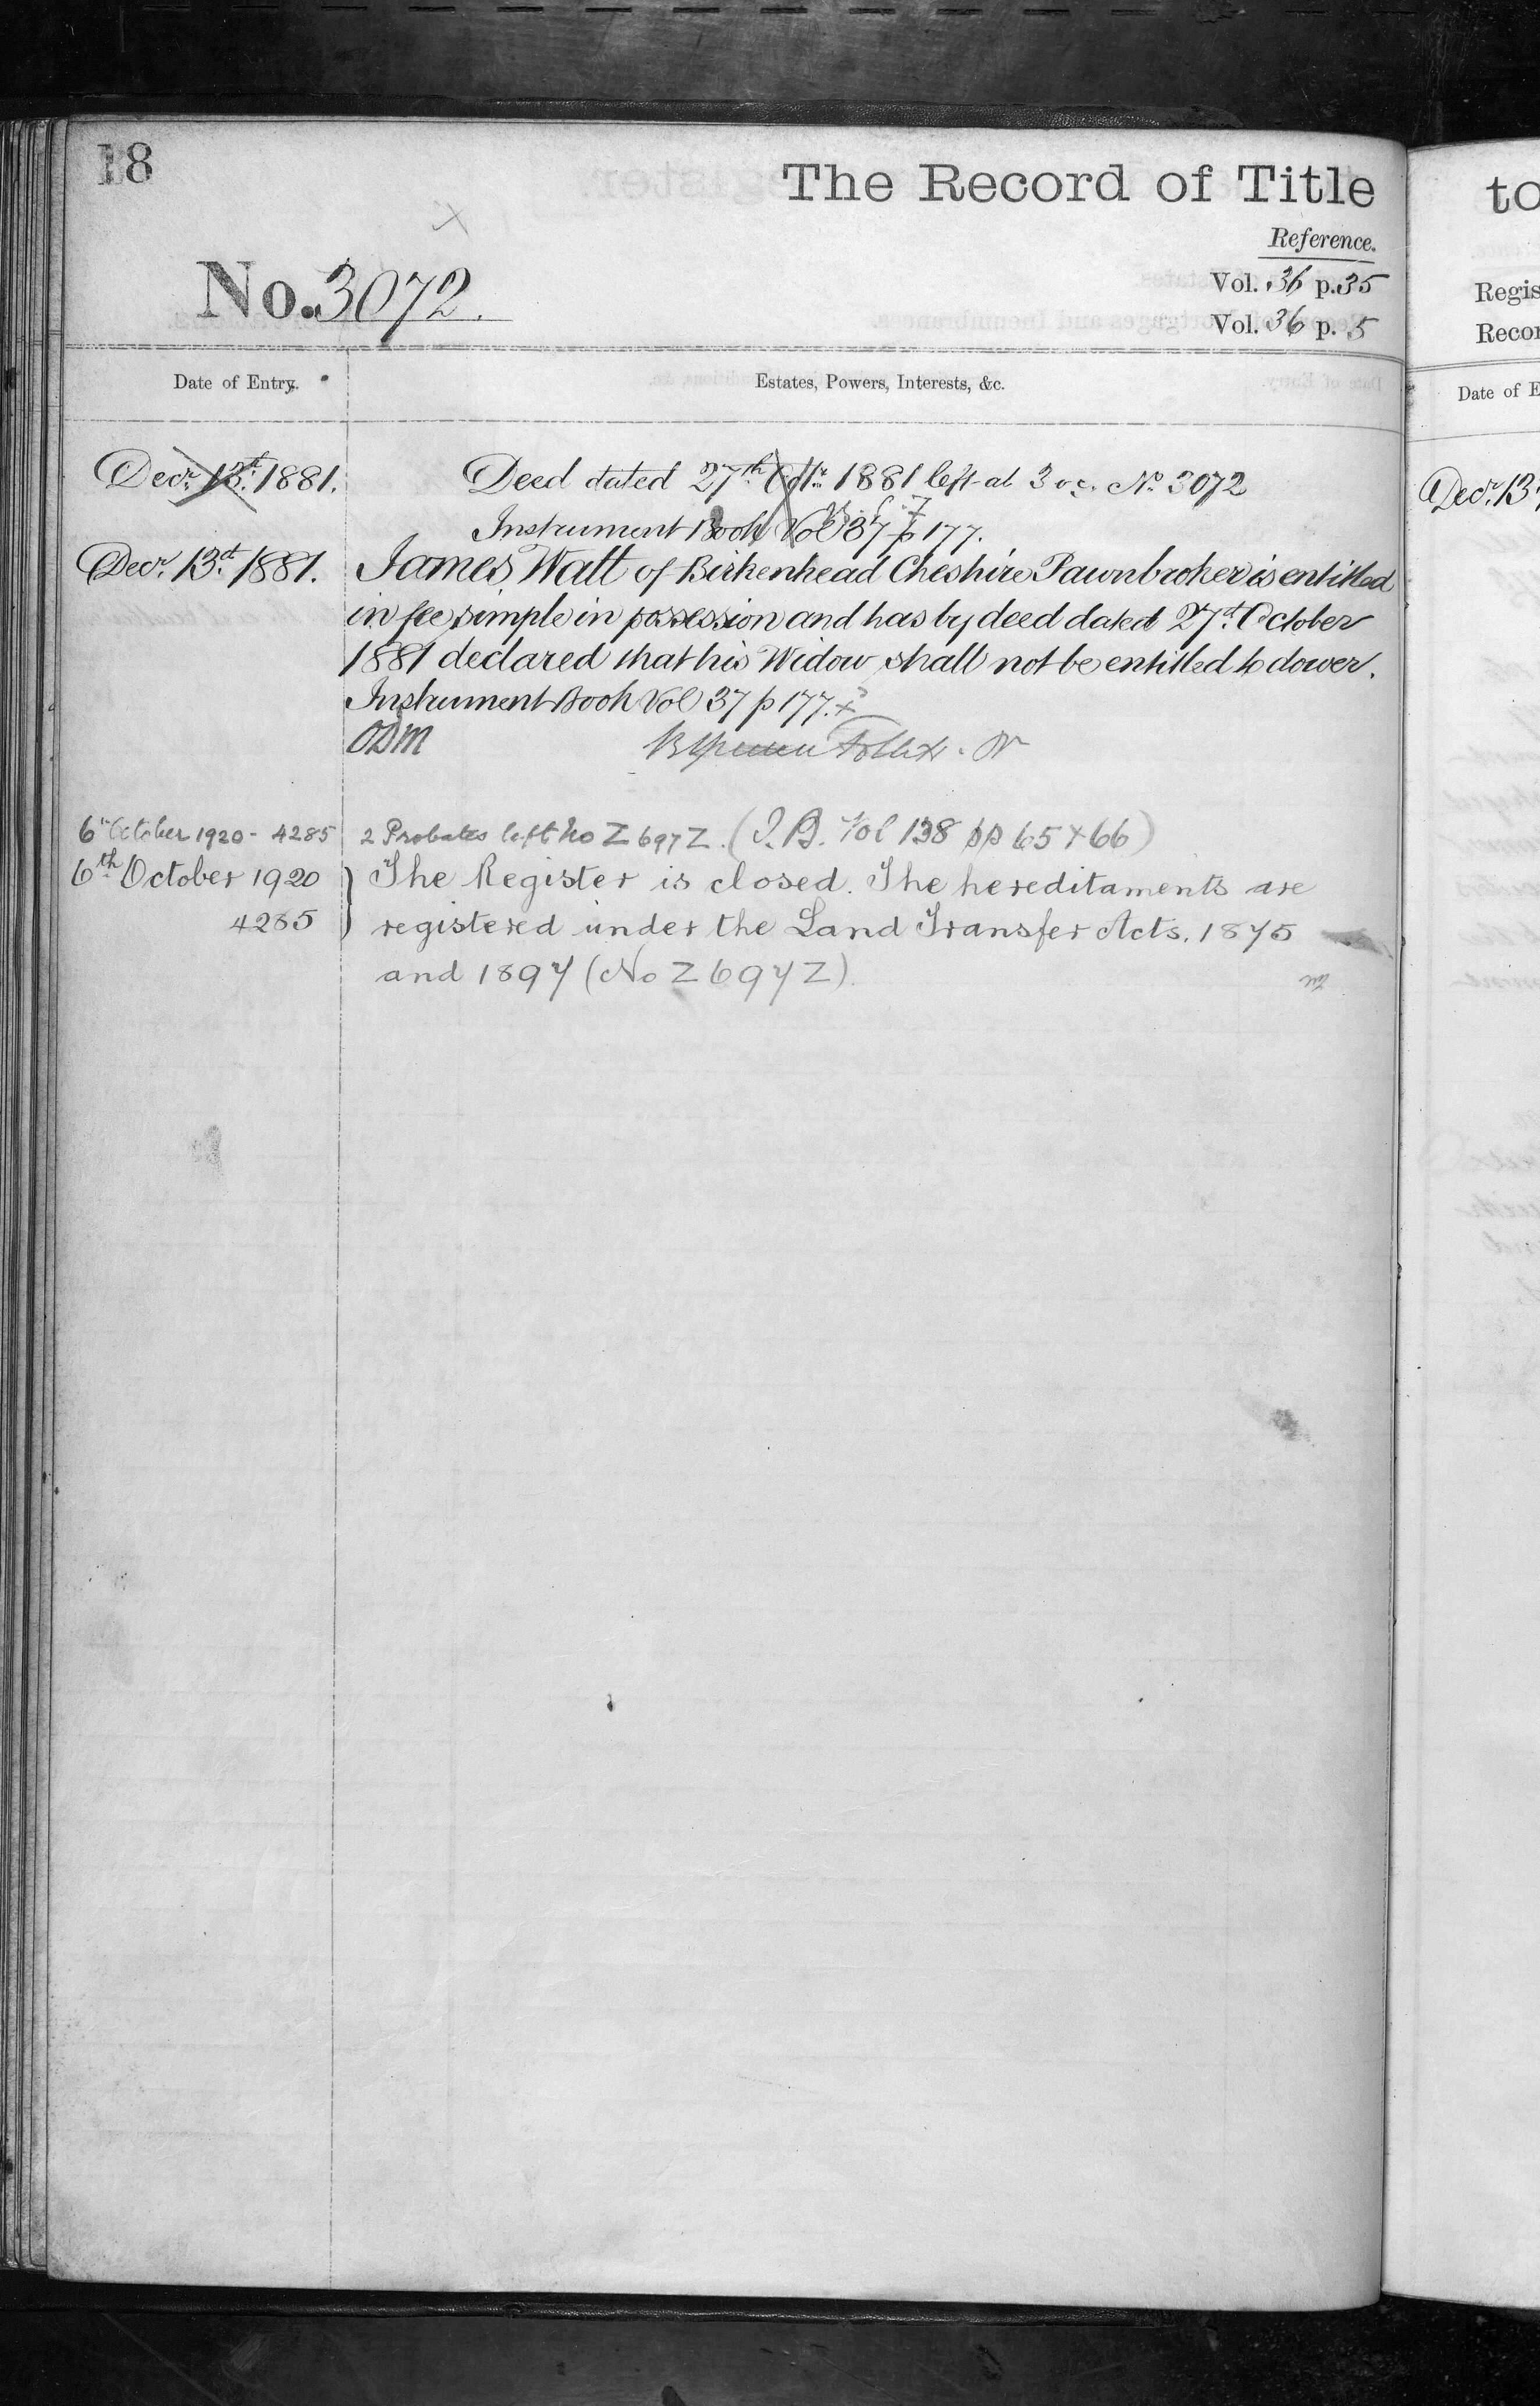 18
The Record of Title
Reference.
No. 3072.
Vol. 36 p. 35
Vol. 36 p. 5
Date of Entry.
Estates, Powers, Interests, &c.
Decr. 13th. 1881.
Deed dated 27th Octr. 1881 left at 3 o c. No. 3072
Instrument Book Vol 37 p 177.
Decr. 13th. 1881.
James Watt of Birkenhead Cheshire Pawnbroker is entitled
in fee simple in possession and has by deed dated 27th. October
1881 declared that his Widow shall not be entitled to dower.
Instrument Book Vol 37 p 177. x
ODM
6th October 1920 - 4285
2 Probates left No Z 697 Z. (I.B. Vol 138 pp 65 + 66)
6th October 1920
4285
The Register is closed. The hereditaments are
registered under the Land Transfer Acts. 1875
and 1897 (No Z 697 Z).
to
Regis
Recor
Date of E
Decr. 13